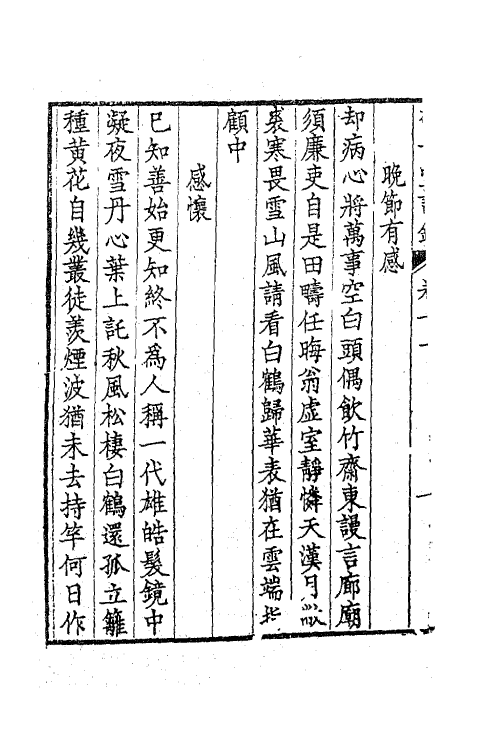 晚節有感
却病心將萬事空白頭偶飲竹齋東謾言廊廟
須廉吏自是田疇任晦翁虛室靜憐天漢月
裘寒畏雪山風請看白鶴歸華表猶在雲端指
顧中
感懷
已知善始更知終不爲人稱一代雄皓髮鏡中
凝夜雪丹心葉上託秋風松棲白鶴還孤立籬
種黃花自幾叢徒羨煙波猶未去持竿何日作